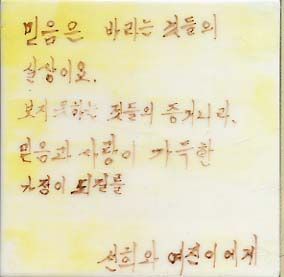 믿음은 바라는 것들의
실상이요.
보지 못하는 것들의 증거니라.
믿음과 사랑이 가득한
가정이 되길를
선희와 여진이에게